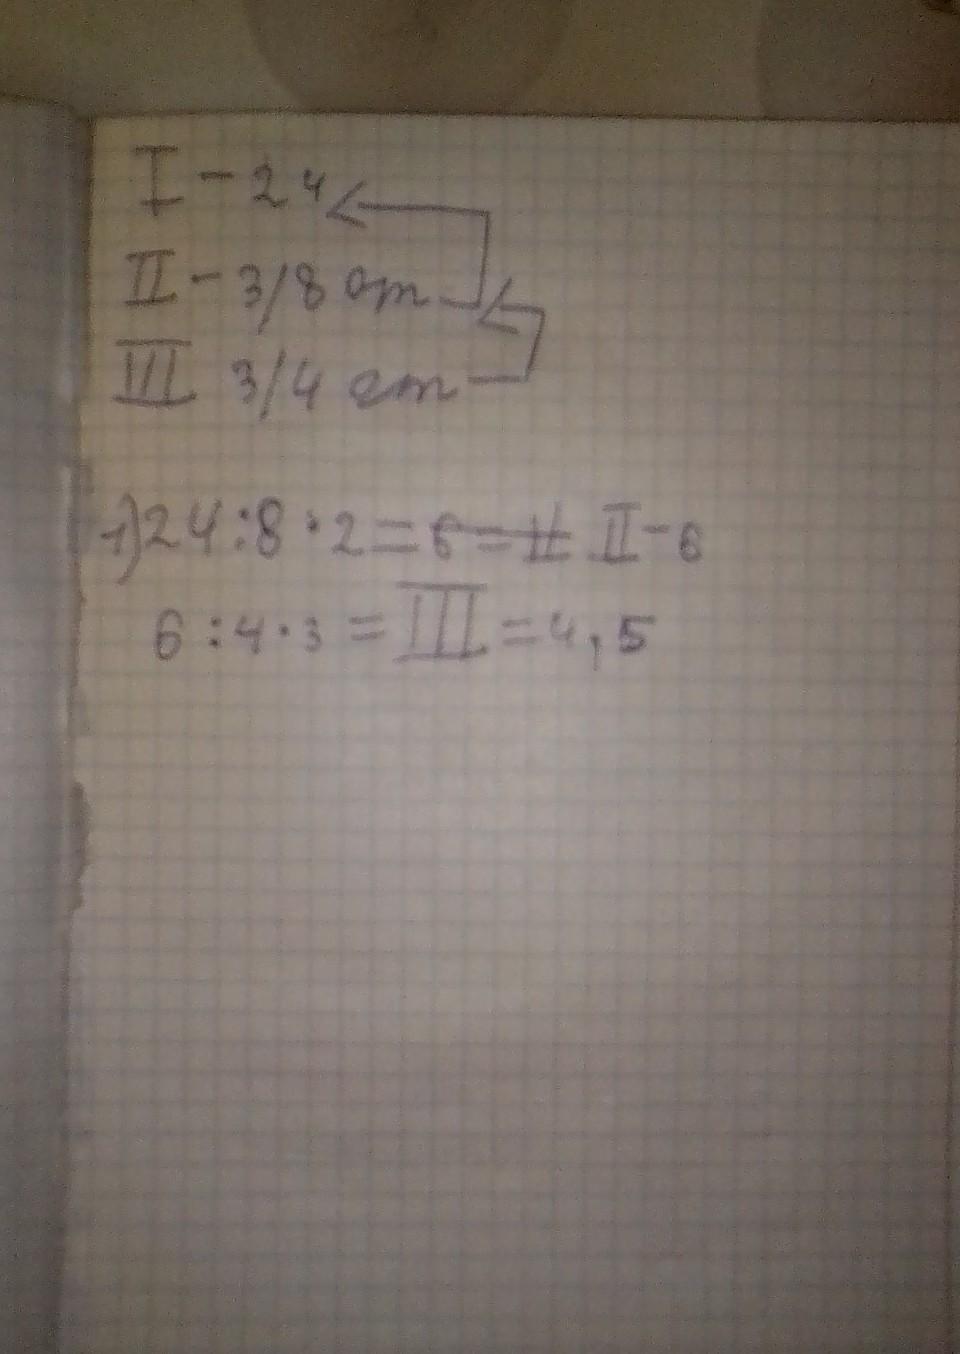 I - 24
II - 3/8 от
III 3/4 от
1) 24 : 8 · 2 = 6 = II II - 6
6 : 4 · 3 = III = 4,5